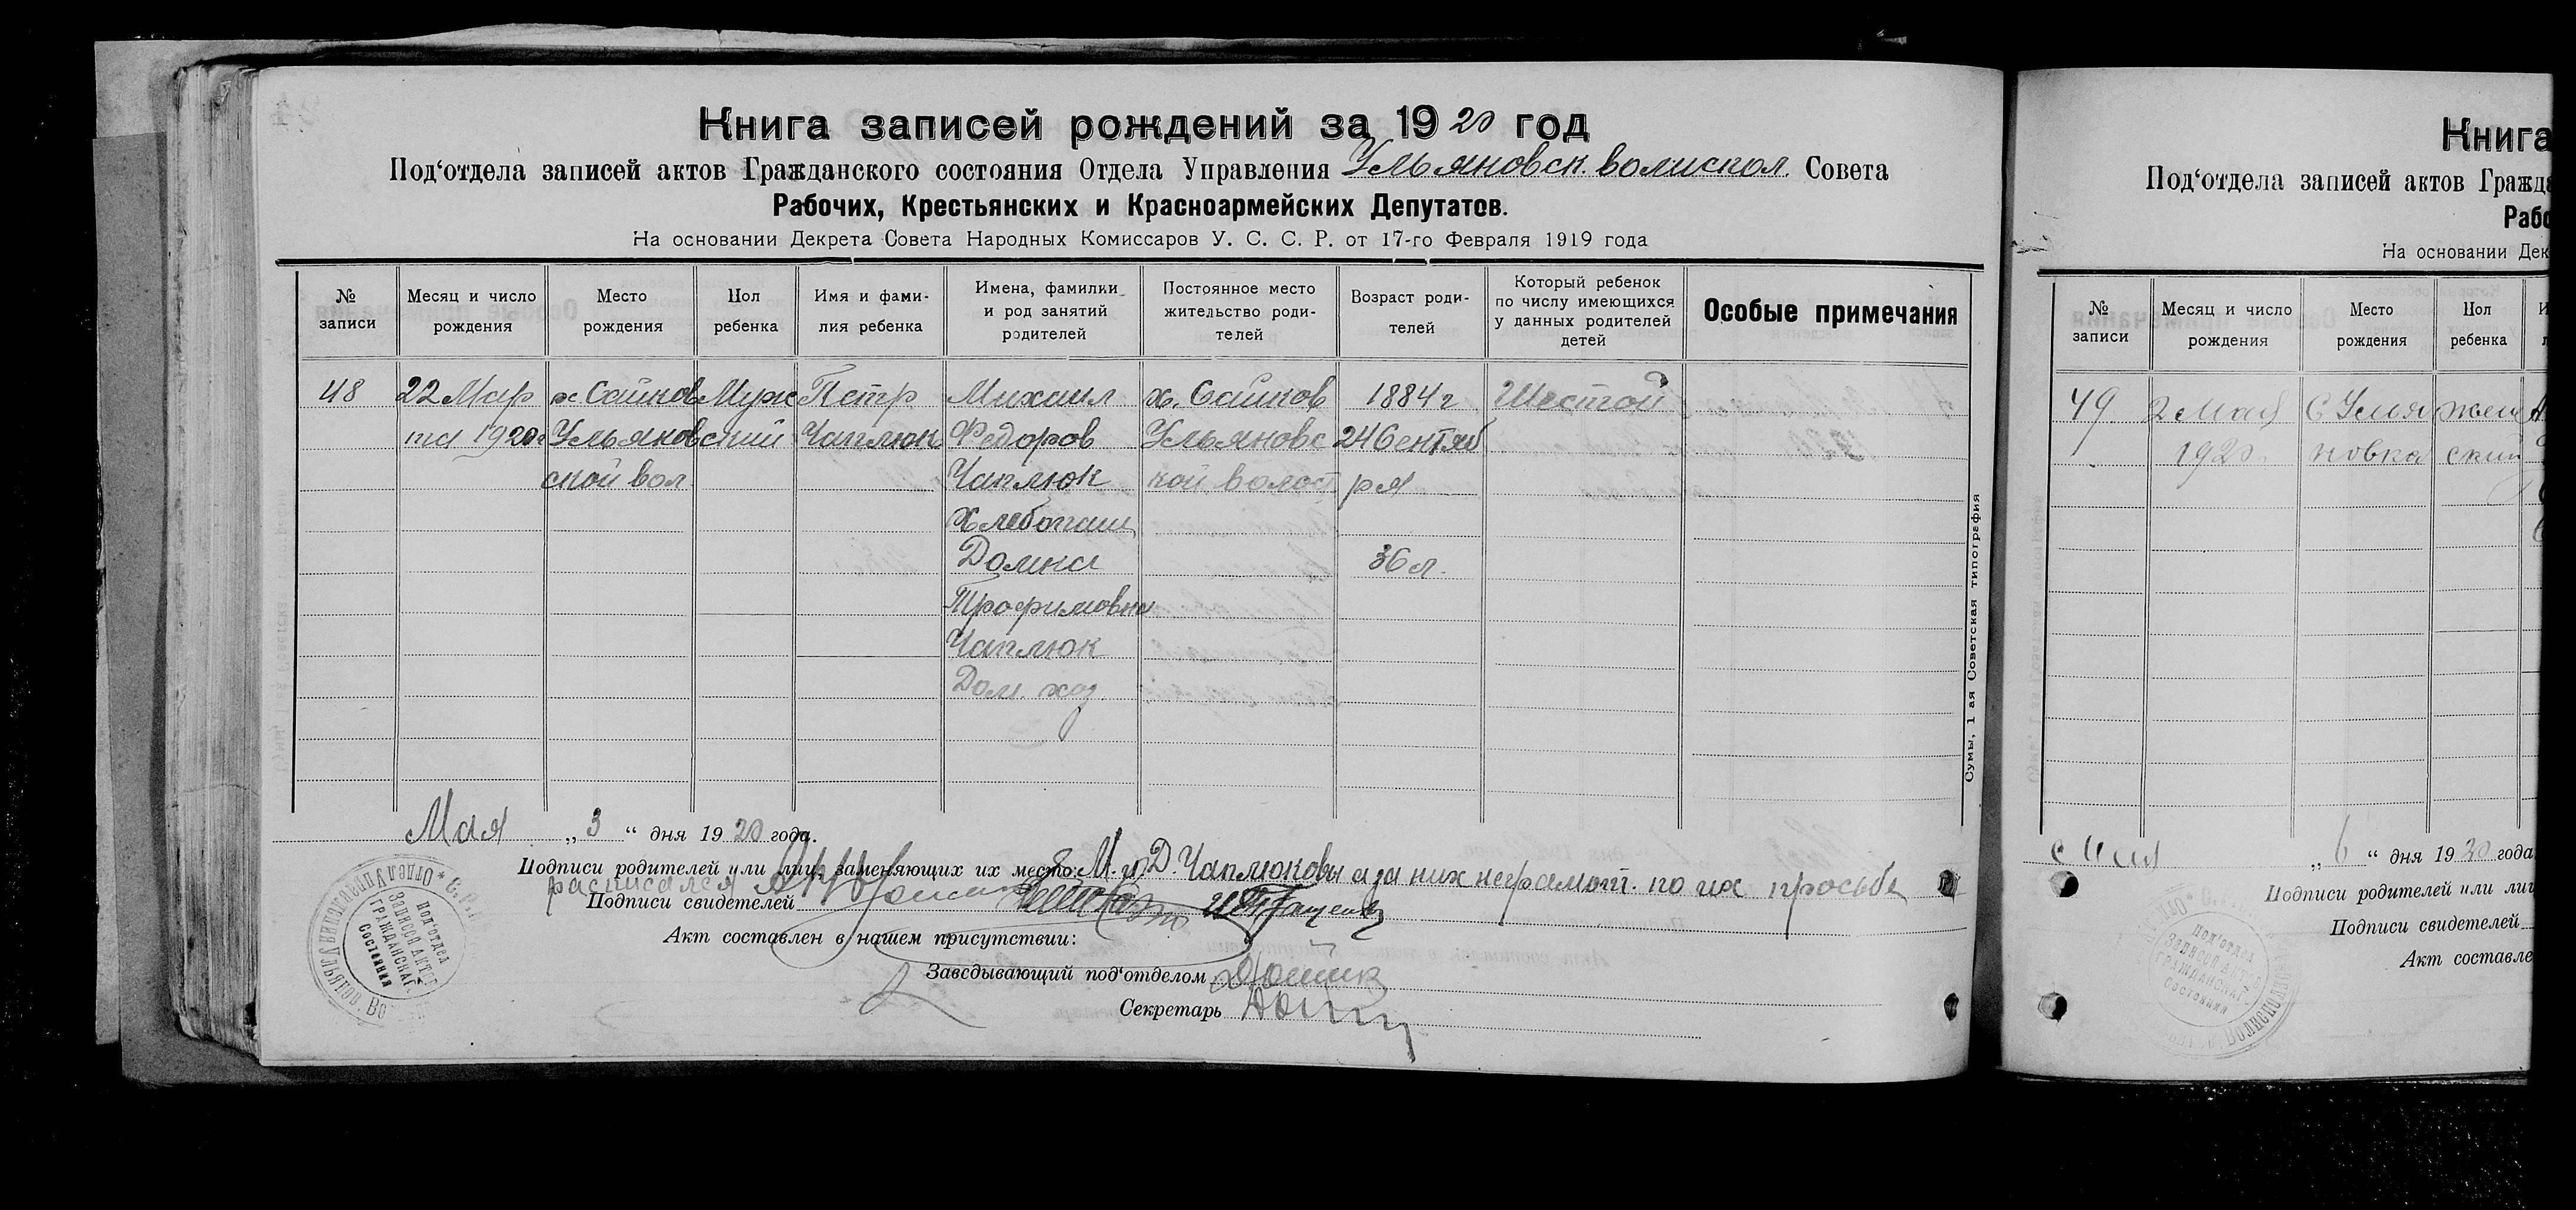 Книга записей рождений за 1920 год
Под‘отдела записей актов Гражданского состояния Отдела Управления Ульяновск. волиспол. Совета
Рабочих, Крестьянских и Красноармейских Депутатов.
На основании Декрета Совета Народных Комиссаров У. С. С. Р. от 17-го Февраля 1919 года
№ записи
Месяц и число рождения
Место рождения
Пол ребенка
Имя и фами-
лия ребенка
Имена, фамилки
и род занятий
родителей
Постоянное место
жительство роди-
телей
Возраст роди-
телей
Который ребенок
по числу имеющихся
у данных родителей
детей
Особые примечания
48 22 Мар х. Сайков Муж Петр Михаил х. Сайков 1884 г Шестой
та 1920 г Ульяновский Чаплюк Федоров Ульяновс 24 Сентяб
ской вол. Чаплюк кой волост ря
Хлебопаш
Домна 36 л.
Трофимовна
Чаплюк
Дом. хоз.
Сумы, 1 ая Советская типография
Мая „3“ дня 1920 года.
Подписи родителей или лиц, заменяющих их место: М. и Д. Чаплюковы а за них неграмот. по их просьбе
расписался
Подписи свидетелей
Акт составлен в нашем присутствии:
Заведывающий под‘отделом
Секретарь
Под‘отдел
Записей Актов
Гражданскаг.
Состояния
Книга
Под‘отдела записей актов Гражда
Рабо
На основании Дек
№ записи
Месяц и число рождения
Место рождения
Пол ребенка
49. 2 Мая С Улья жен
1920 новка ский
„6“ дня 1920 года
Подписи родителей или лиц
Подписи свидетелей
Акт составле
Под‘отдел
Записей Актов
Гражданскаг.
Состояния